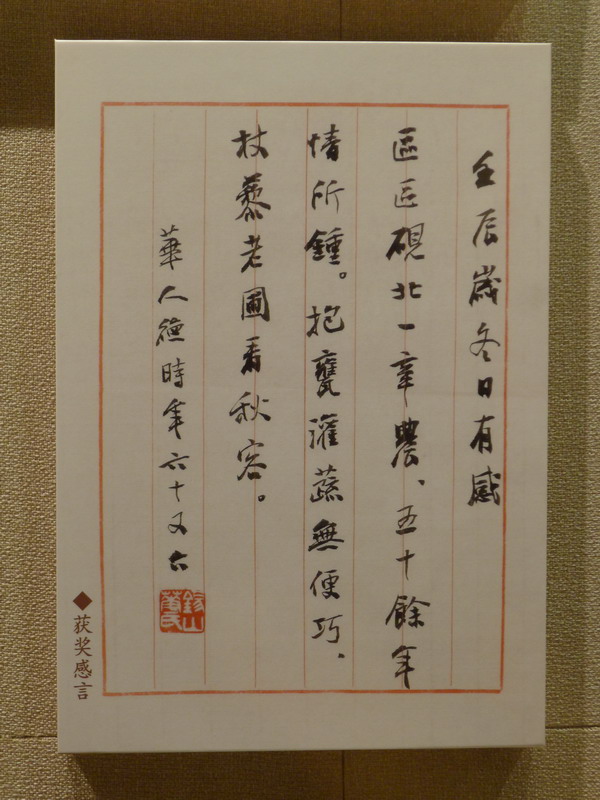 壬辰歲冬日有感
區區硯北一辛農、五十餘年
情所鍾。抱甕灌蔬無便巧、
杖藜老圃看秋容。
華人德時年六十又六
錫山華氏
◆获奖感言